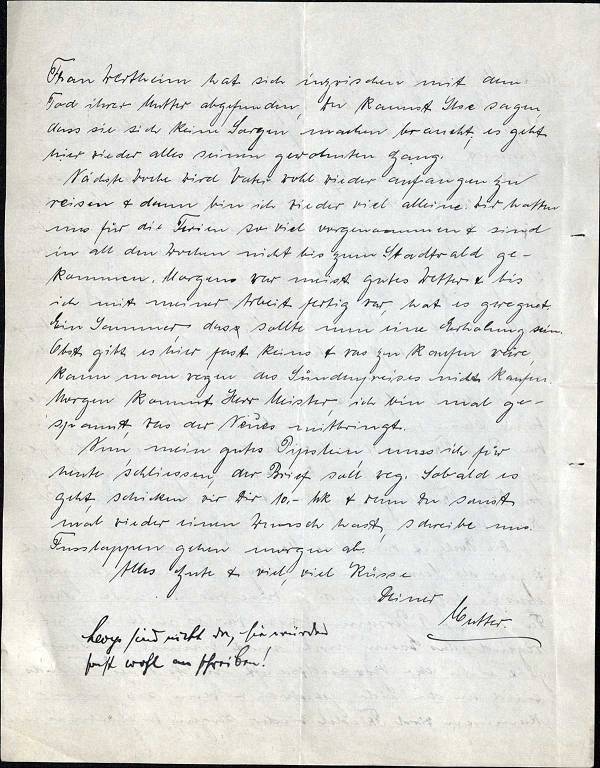 Frau Wertheim hat sich inzwischen mit dem
Tod ihrer Mutter abgefunden, Du kannst Ilse sagen,
dass sie sich keine Sorgen machen braucht, es geht
hier wieder alles seinen gewohnten Gang.
Nächste Woche wird Vater wohl wieder anfangen zu
reisen & dann bin ich wieder viel alleine. Wir hatten
uns für die Ferien so viel vorgenommen & sind
in all den Wochen nicht bis zum Stadtwald ge-
kommen. Morgens war meist gutes Wetter & bis
ich mit meiner Arbeit fertig war, hat es geregnet.
Ein Sommer, dass sollte nun eine Erholung sein.
Obst gibt es hier fast keins & was zu kaufen wäre,
kann man wegen des Sündenpreises nicht kaufen.
Morgen kommt Herr Meister, ich bin mal ge-
spannt, was der Neues mitbringt.
Nun mein gutes muss ich für
heute schliessen, der Brief soll weg. Sobald es
geht, schicken wir Dir 10,- Mk & wenn Du sonst
mal wieder einen Wunsch hast, schreibe uns.
Fusslappen gehen morgen ab.
Alles Gute & viel, viel Küsse
Deiner
Mutter.
sind nicht da, sie würden
sonst wohl anschreiben!